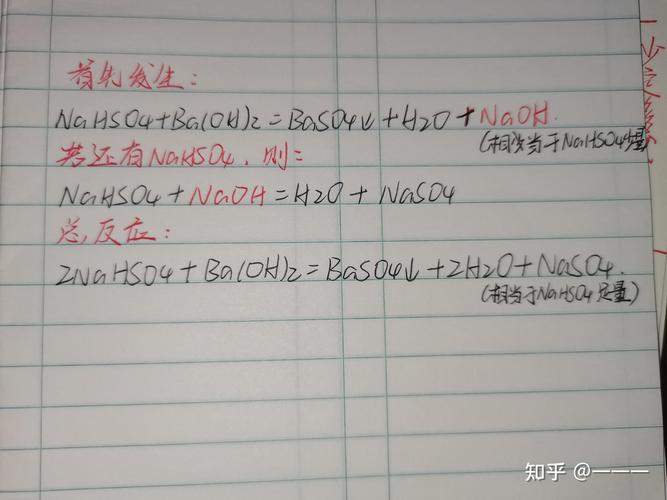 首先发生:
NaHSO4+Ba(OH)2=BaSO4↓+H2O+NaOH.
(相当于NaHSO4少量)
若还有NaHSO4,则:
NaHSO4+NaOH=H2O+NaSO4
总反应:
2NaHSO4+Ba(OH)2=BaSO4↓+2H2O+NaSO4.
(相当于NaHSO4足量)
知乎 @一一一